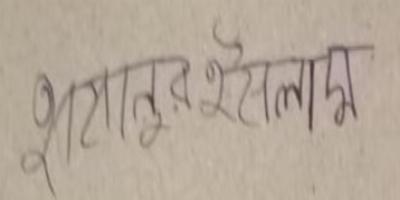 হাসানুর ইসলাম